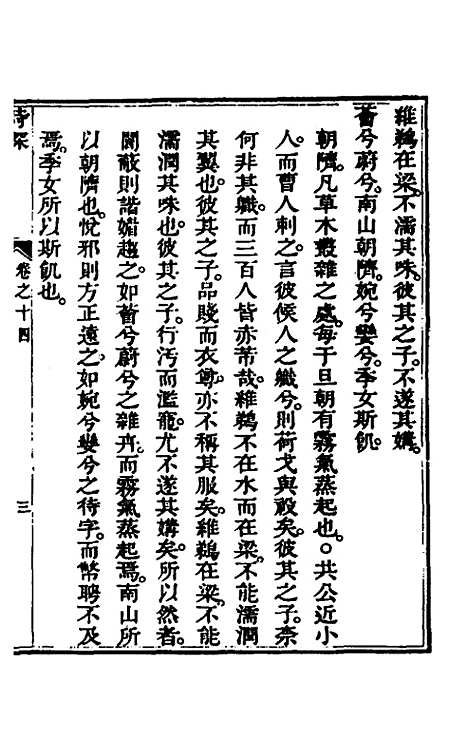 維鵜在梁。不濡其咮。彼其之子。不遂其媾。
薈兮蔚兮。南山朝隮。婉兮孌兮。季女斯飢。
朝隮。凡草木叢雜之處。每于旦朝有霧氣蒸起也。○共公近小
人。而曹人刺之。言彼候人之職兮。則荷戈與祋矣。彼其之子。奈
何非其職。而三百人皆赤芾哉。維鵜不在水而在梁。不能濡潤
其翼也。彼其之子。品賤而衣尊。亦不稱其服矣。維鵜在梁。不能
濡潤其咮也。彼其之子。行污而濫寵。尤不遂其媾矣。所以然者。
闒敵則諧媚趨之。如薈兮蔚兮之雜卉。而霧氣蒸起焉。南山所
以朝隮也。悅邪則方正遠之。如婉兮孌兮之待字。而幣聘不及
焉。季女所以斯飢也。
卷之十四
三